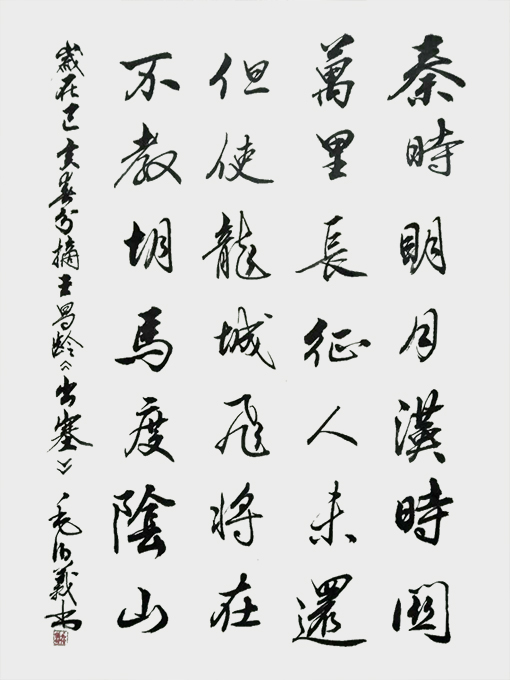 秦時明月漢時關
萬里長征人未還
但使龍城飛將在
不教胡馬度陰山
歲在己亥春分摘王昌龄《出塞》 毛 義書